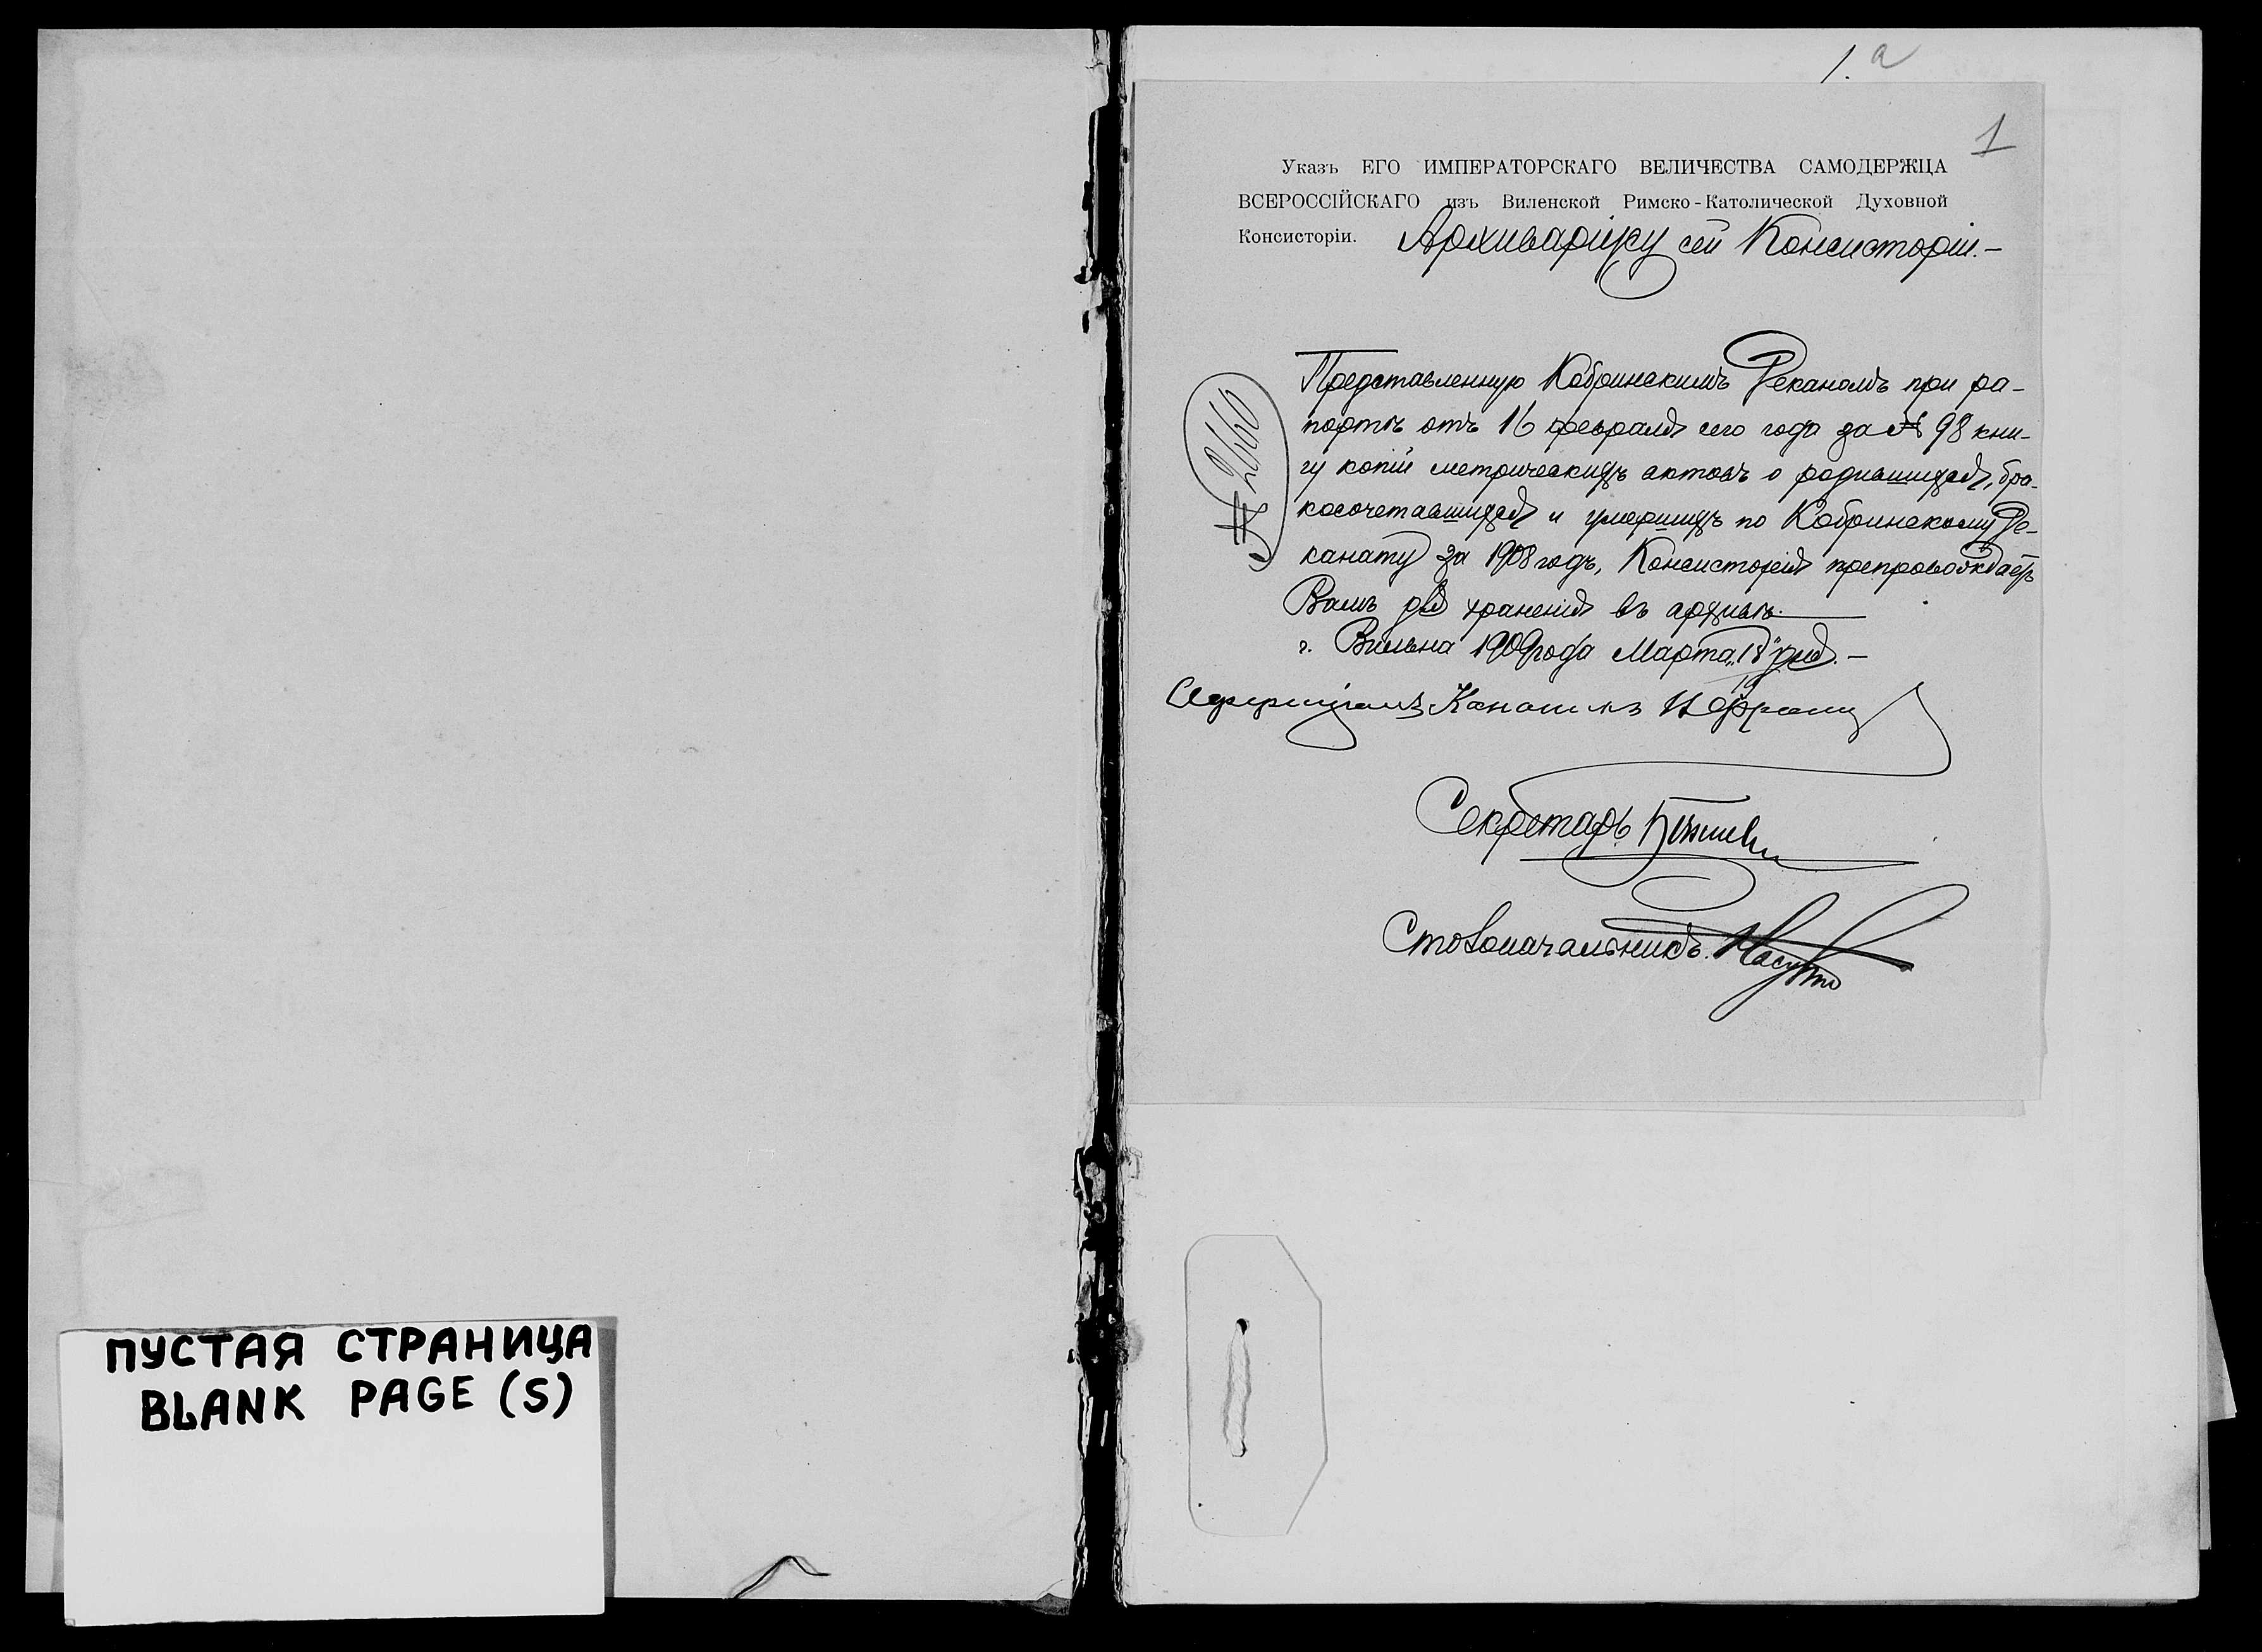 1.а
1
Указъ ЕГО ИМПЕРАТОРСКАГО ВЕЛИЧЕСТВА САМОДЕРЖЦА
ВСЕРОССІЙСКАГО изъ Виленской Римско-Католической Духовной
Консисторіи. Архиваріусу сей Консисторіи.—
№ 2660
Представленную Кобринскимъ Деканомъ при ра-
портѣ отъ 16 февраля сего года за № 98 кни-
гу копій метрическихъ актовъ о родившихся, бра-
косочетавшихся и умершихъ по Кобринскому Де-
канату за 1908 годъ, Консисторія препровождаетъ
Вамъ для хранения въ архивѣ.
г. Вильна 1909 года Марта „18" дня.—
Оффиціалъ Каноникъ
Секретарь
Столоначальникъ
ПУСТАЯ СТРАНИЦА
BLANK PAGE (S)